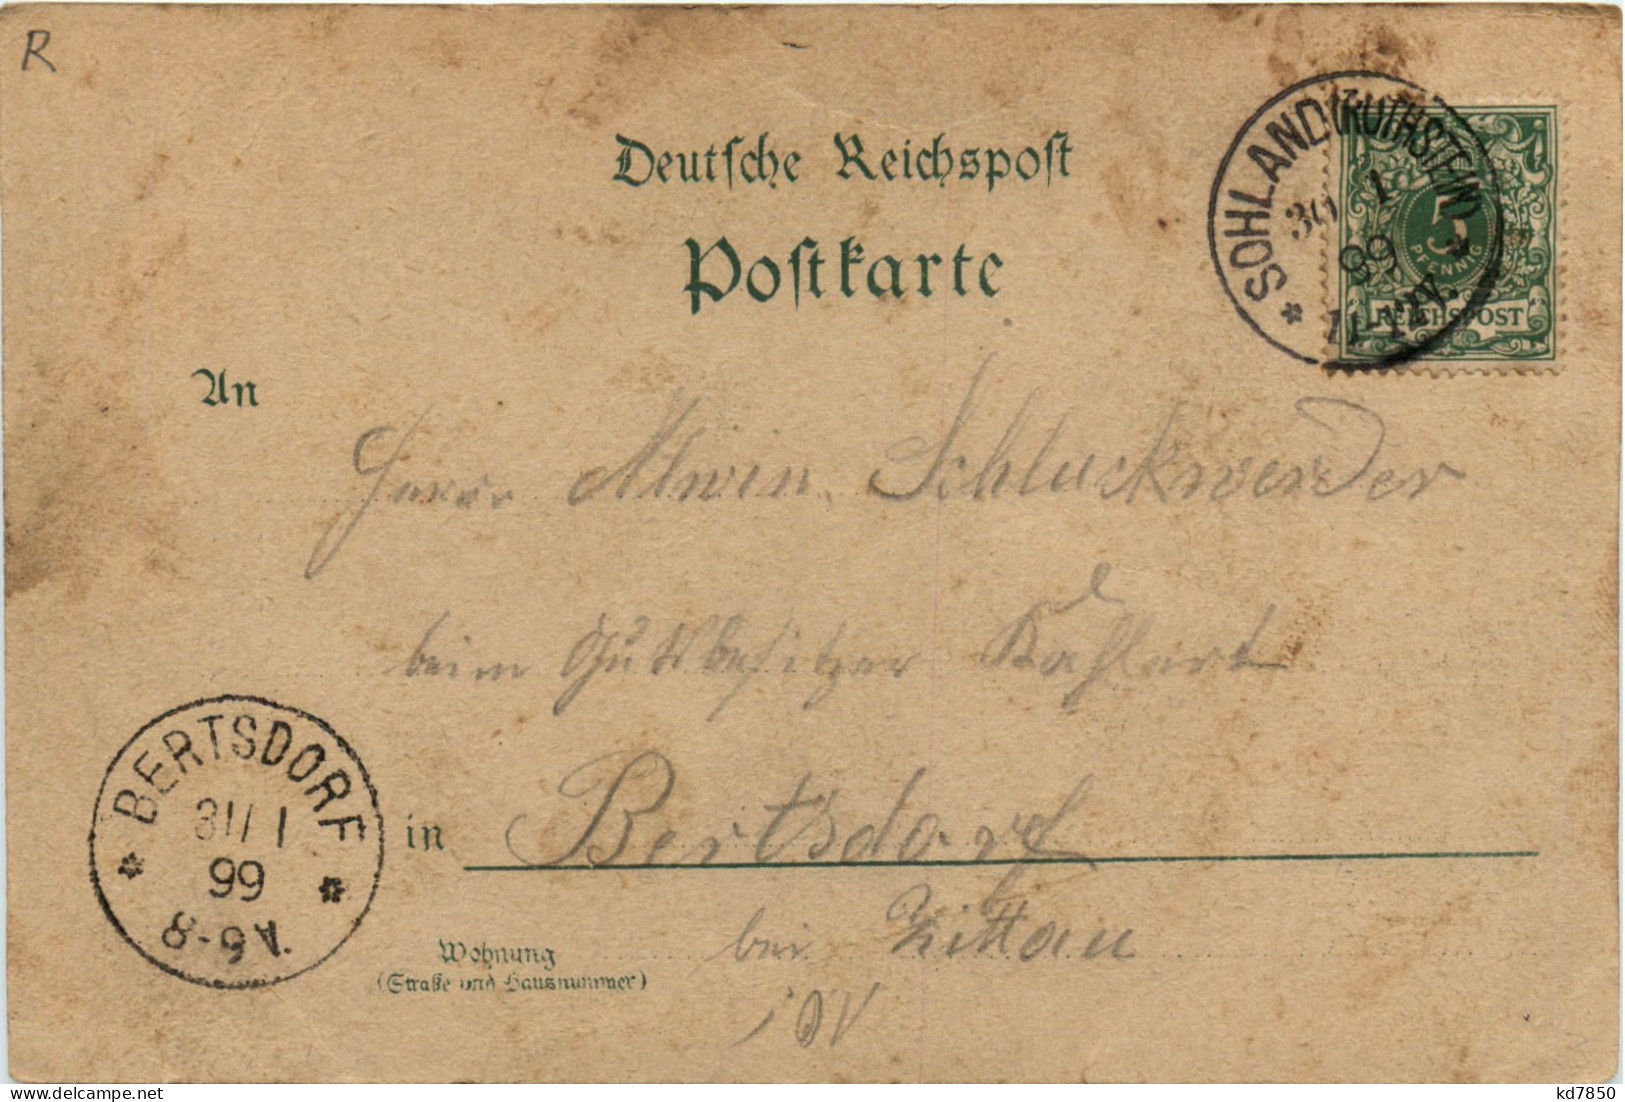 R
Deutsche Reichspost
Postkarte
SOHLAND (ROTHSTEIN)
30 1
99
11-12V.
5
PFENNIG
REICHSPOST
An
Herrn Alwin Schluckwerder
beim Gutsbesitzer Kahlert
in Bertsdorf
bei Zittau
BERTSDORF
31/1
99
6-8
Wohnung
(Straße und Hausnummer)
kd7850